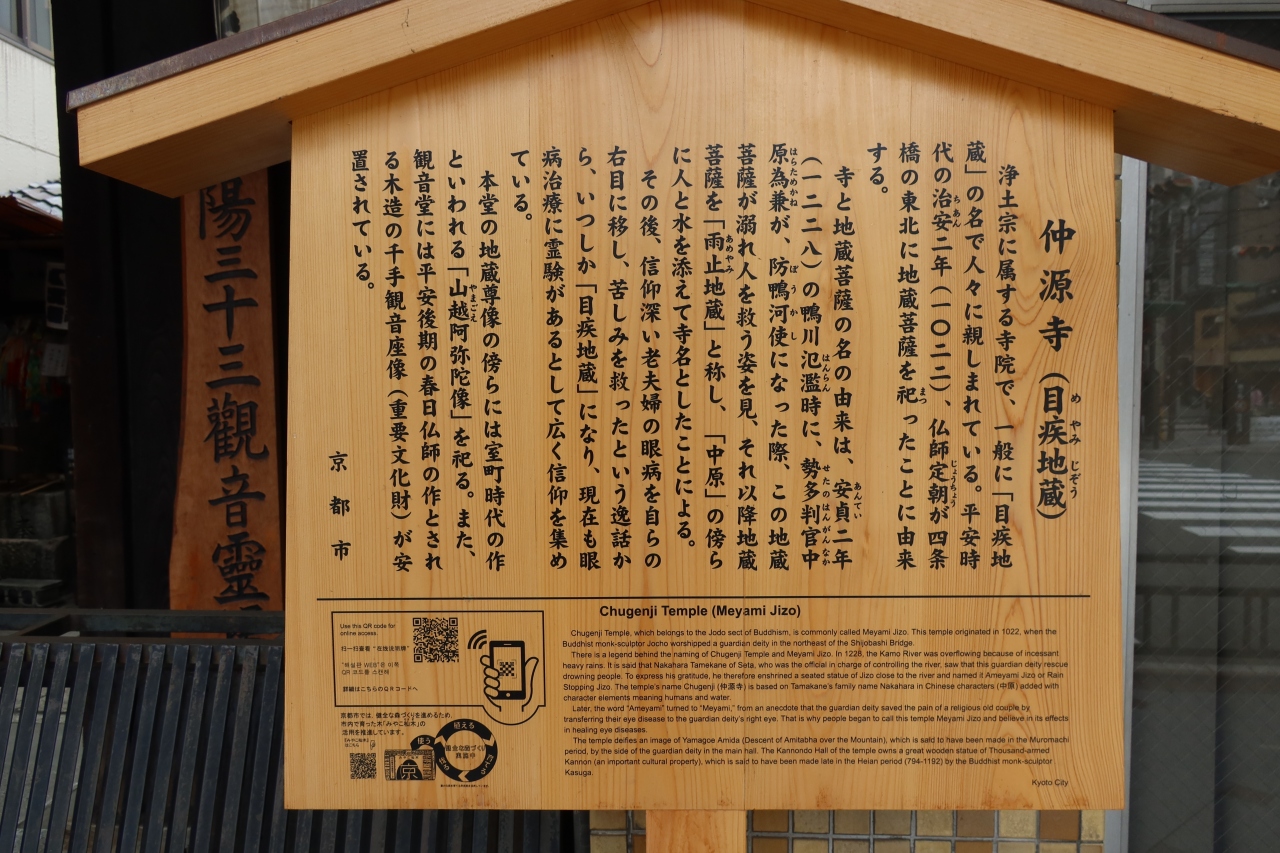 仲源寺（目疾地蔵）
浄土宗に属する寺院で、一般に「目疾地
蔵」の名で人々に親しまれている。平安時
代の治安二年（一〇二二）、仏師定朝が四条
橋の東北に地蔵菩薩を祀ったことに由来
する。
寺と地蔵菩薩の名の由来は、安貞二年
（一二二八）の鴨川氾濫時に、勢多判官中
原為兼が、防鴨河使になった際、この地蔵
菩薩が溺れ人を救う姿を見、それ以降地蔵
菩薩を「雨止地蔵」と称し、「中原」の傍ら
に人と水を添えて寺名としたことによる。
その後、信仰深い老夫婦の眼病を自らの
右目に移し、苦しみを救ったという逸話か
ら、いつしか「目疾地蔵」になり、現在も眼
病治療に霊験があるとして広く信仰を集め
ている。
本堂の地蔵尊像の傍らには室町時代の作
といわれる「山越阿弥陀像」を祀る。また、
観音堂には平安後期の春日仏師の作とされ
る木造の千手観音座像（重要文化財）が安
置されている。
京都市
陽三十三觀音靈
Chugenji Temple (Meyami Jizo)
Chugenji Temple, which belongs to the Jodo sect of Buddhism, is commonly called Meyami Jizo. This temple originated in 1022, when the
Buddhist monk-sculptor Jocho worshipped a guardian deity in the northeast of the Shijobashi Bridge.
There is a legend behind the naming of Chugenji Temple and Meyami Jizo. In 1228, the Kamo River was overflowing because of incessant
heavy rains. It is said that Nakahara Tamekane of Seta, who was the official in charge of controlling the river, saw that this guardian deity rescue
drowning people. To express his gratitude, he therefore enshrined a seated statue of Jizo close to the river and named it Ameyami Jizo or Rain
Stopping Jizo. The temple's name Chugenji (仲源寺) is based on Tamakane's family name Nakahara in Chinese characters (中原) added with
character elements meaning humans and water.
Later, the word "Ameyami" turned to "Meyami," from an anecdote that the guardian deity saved the pain of a religious old couple by
transferring their eye disease to the guardian deity's right eye. That is why people began to call this temple Meyami Jizo and believe in its effects
in healing eye diseases.
The temple deifies an image of Yamagoe Amida (Descent of Amitabha over the Mountain), which is said to have been made in the Muromachi
period, by the side of the guardian deity in the main hall. The Kannondo Hall of the temple owns a great wooden statue of Thousand-armed
Kannon (an important cultural property), which is said to have been made late in the Heian period (794-1192) by the Buddhist monk-sculptor
Kasuga.
Kyoto City
Use this QR code for
online access.
扫一扫查看"在线说明牌"
QR 코드를 스캔해
詳細はこちらのQRコードへ
京都市では、健全な森づくりを進めるため、
市内で育った木「みやこ杣木」の
活用を推進しています。
植える
使う
健全な森づくり
京